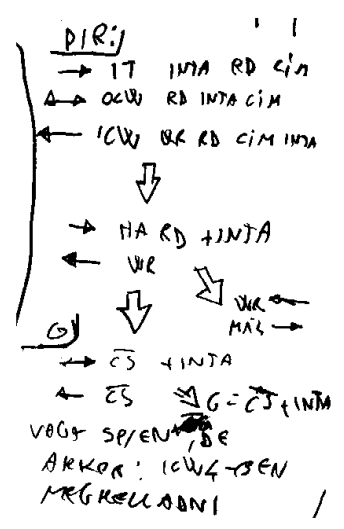 DIR:
→ IT INTA RD CÍM
↔ OCW RD INTA CÍM
← ICW WR RD CÍM INTA
⇓
→ HA RD + INTA
← WR
WR ←
MÁS →
G
→ C̅S̅ + INTA
← C̅S̅ G = C̅S̅ + INTA
VAGY SP/EN, DE
AKKOR: ICW4-BEN
MEG KELL ADNI